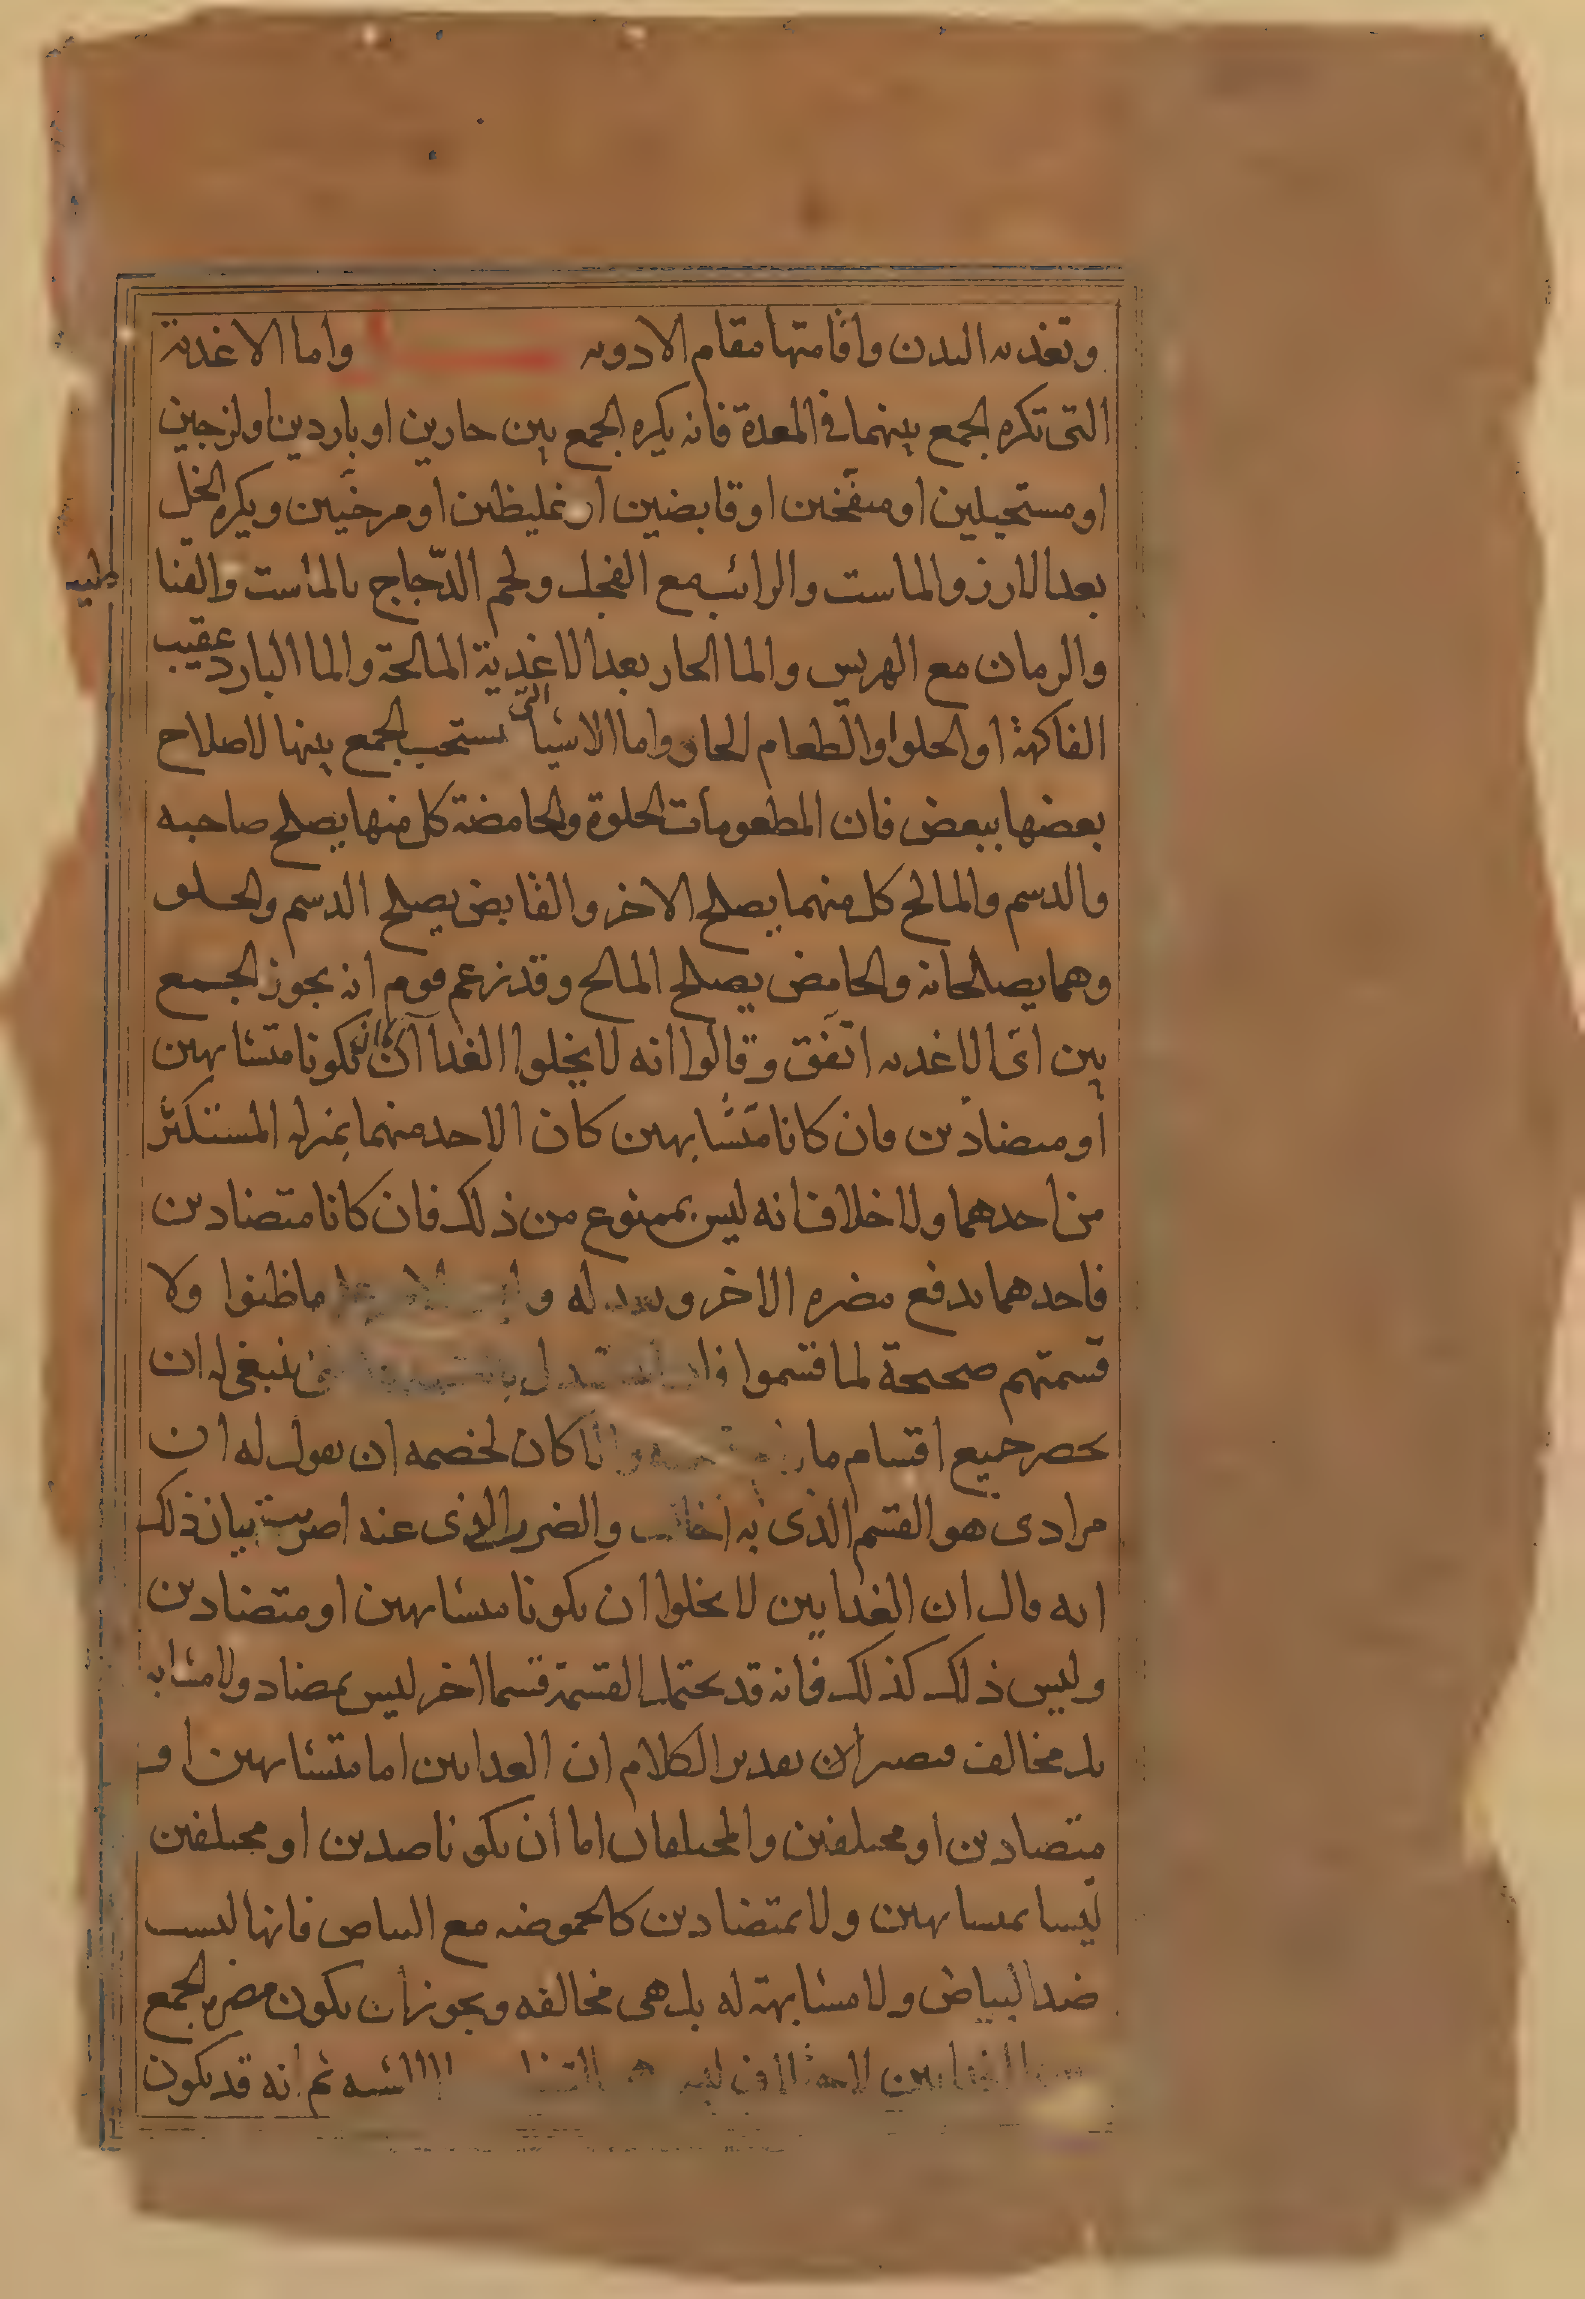 وتغذيه البدن واقامتها مقام الادويه واما الاغذية
التى تكره الجمع بينهما فى المعدة فانه يكره الجمع بين حارين او باردين او لزجين
او مستحيلين او منفخين او قابضين او غليظين او مرخيين ويكره الخل
بعد الارز والماست والرائب مع الفجل ولحم الدّجاج بالماست والقثا
والرمان مع الهريس والما الحار بعد الاغذية المالحة والما البارد عقيب
الفاكهة او الحلوا والطعام الحار واما الاشيا التى تستحب الجمع بينها لاصلاح
بعضها ببعض فان المطعومات الحلوة والحامضة كل منها يصلح صاحبه
والدسم والمالح كل منهما يصلح الاخر والقابض يصلح الدسم والحلو
وهما يصلحانه والحامض يصلح المالح وقد زعم قوم انه يجوز الجمع
بين اى الاغديه اتفق وقالوا انه لا يخلوا الغداآن ان يكونا متشابهين
او متضادين فان كانا متشابهين كان الاحد منهما بمنزله المستكثر
من احدهما ولا خلاف انه ليس بممنوع من ذلك فان كانا متضادين
فاحدهما يدفع مضره الاخر ويعدله ما ظنوا ولا
قسمتهم صحيحة لما قسموا ينبغى له ان
يحصر جميع اقسام ما والا كان لخصمه ان يقول له ان
مرادى هو القسم الذى به اخالف والضرر الذى عنه اضربت بيان ذلك
انه قال ان الغدايين لا يخلوا ان يكونا متشابهين او متضادين
وليس ذلك كذلك فانه قد يحتمل القسمة قسما اخر ليس بمضاد ولا مشابه
بل مخالف فيصير الان تقدير الكلام ان الغدايين اما متشابهين او
متضادين او مختلفين والمختلفان اما ان يكونا ضدين او مختلفين
ليسا بمتشابهين ولا بمتضادين كالحموضه مع البياض فانها ليست
ضد البياض ولا مشابهة له بل هى مخالفه ويجوز ان يكون مضره الجمع
الغدايين ثم انه قد يكون